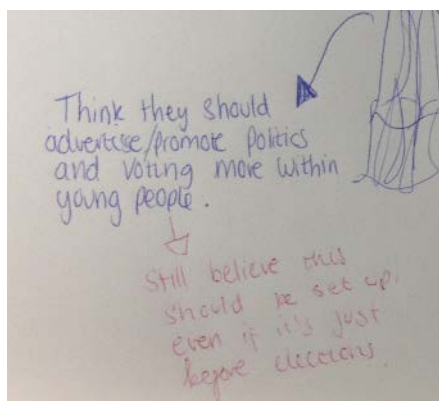 Think they should
advertise/promote politics
and voting more within
young people.
Still believe this
should be set up,
even if it's just
before elections.